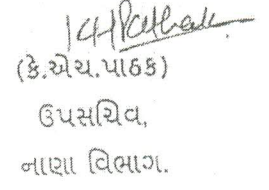 (કે.એચ.પાઠક)
ઉપસચિવ,
નાણા વિભાગ.